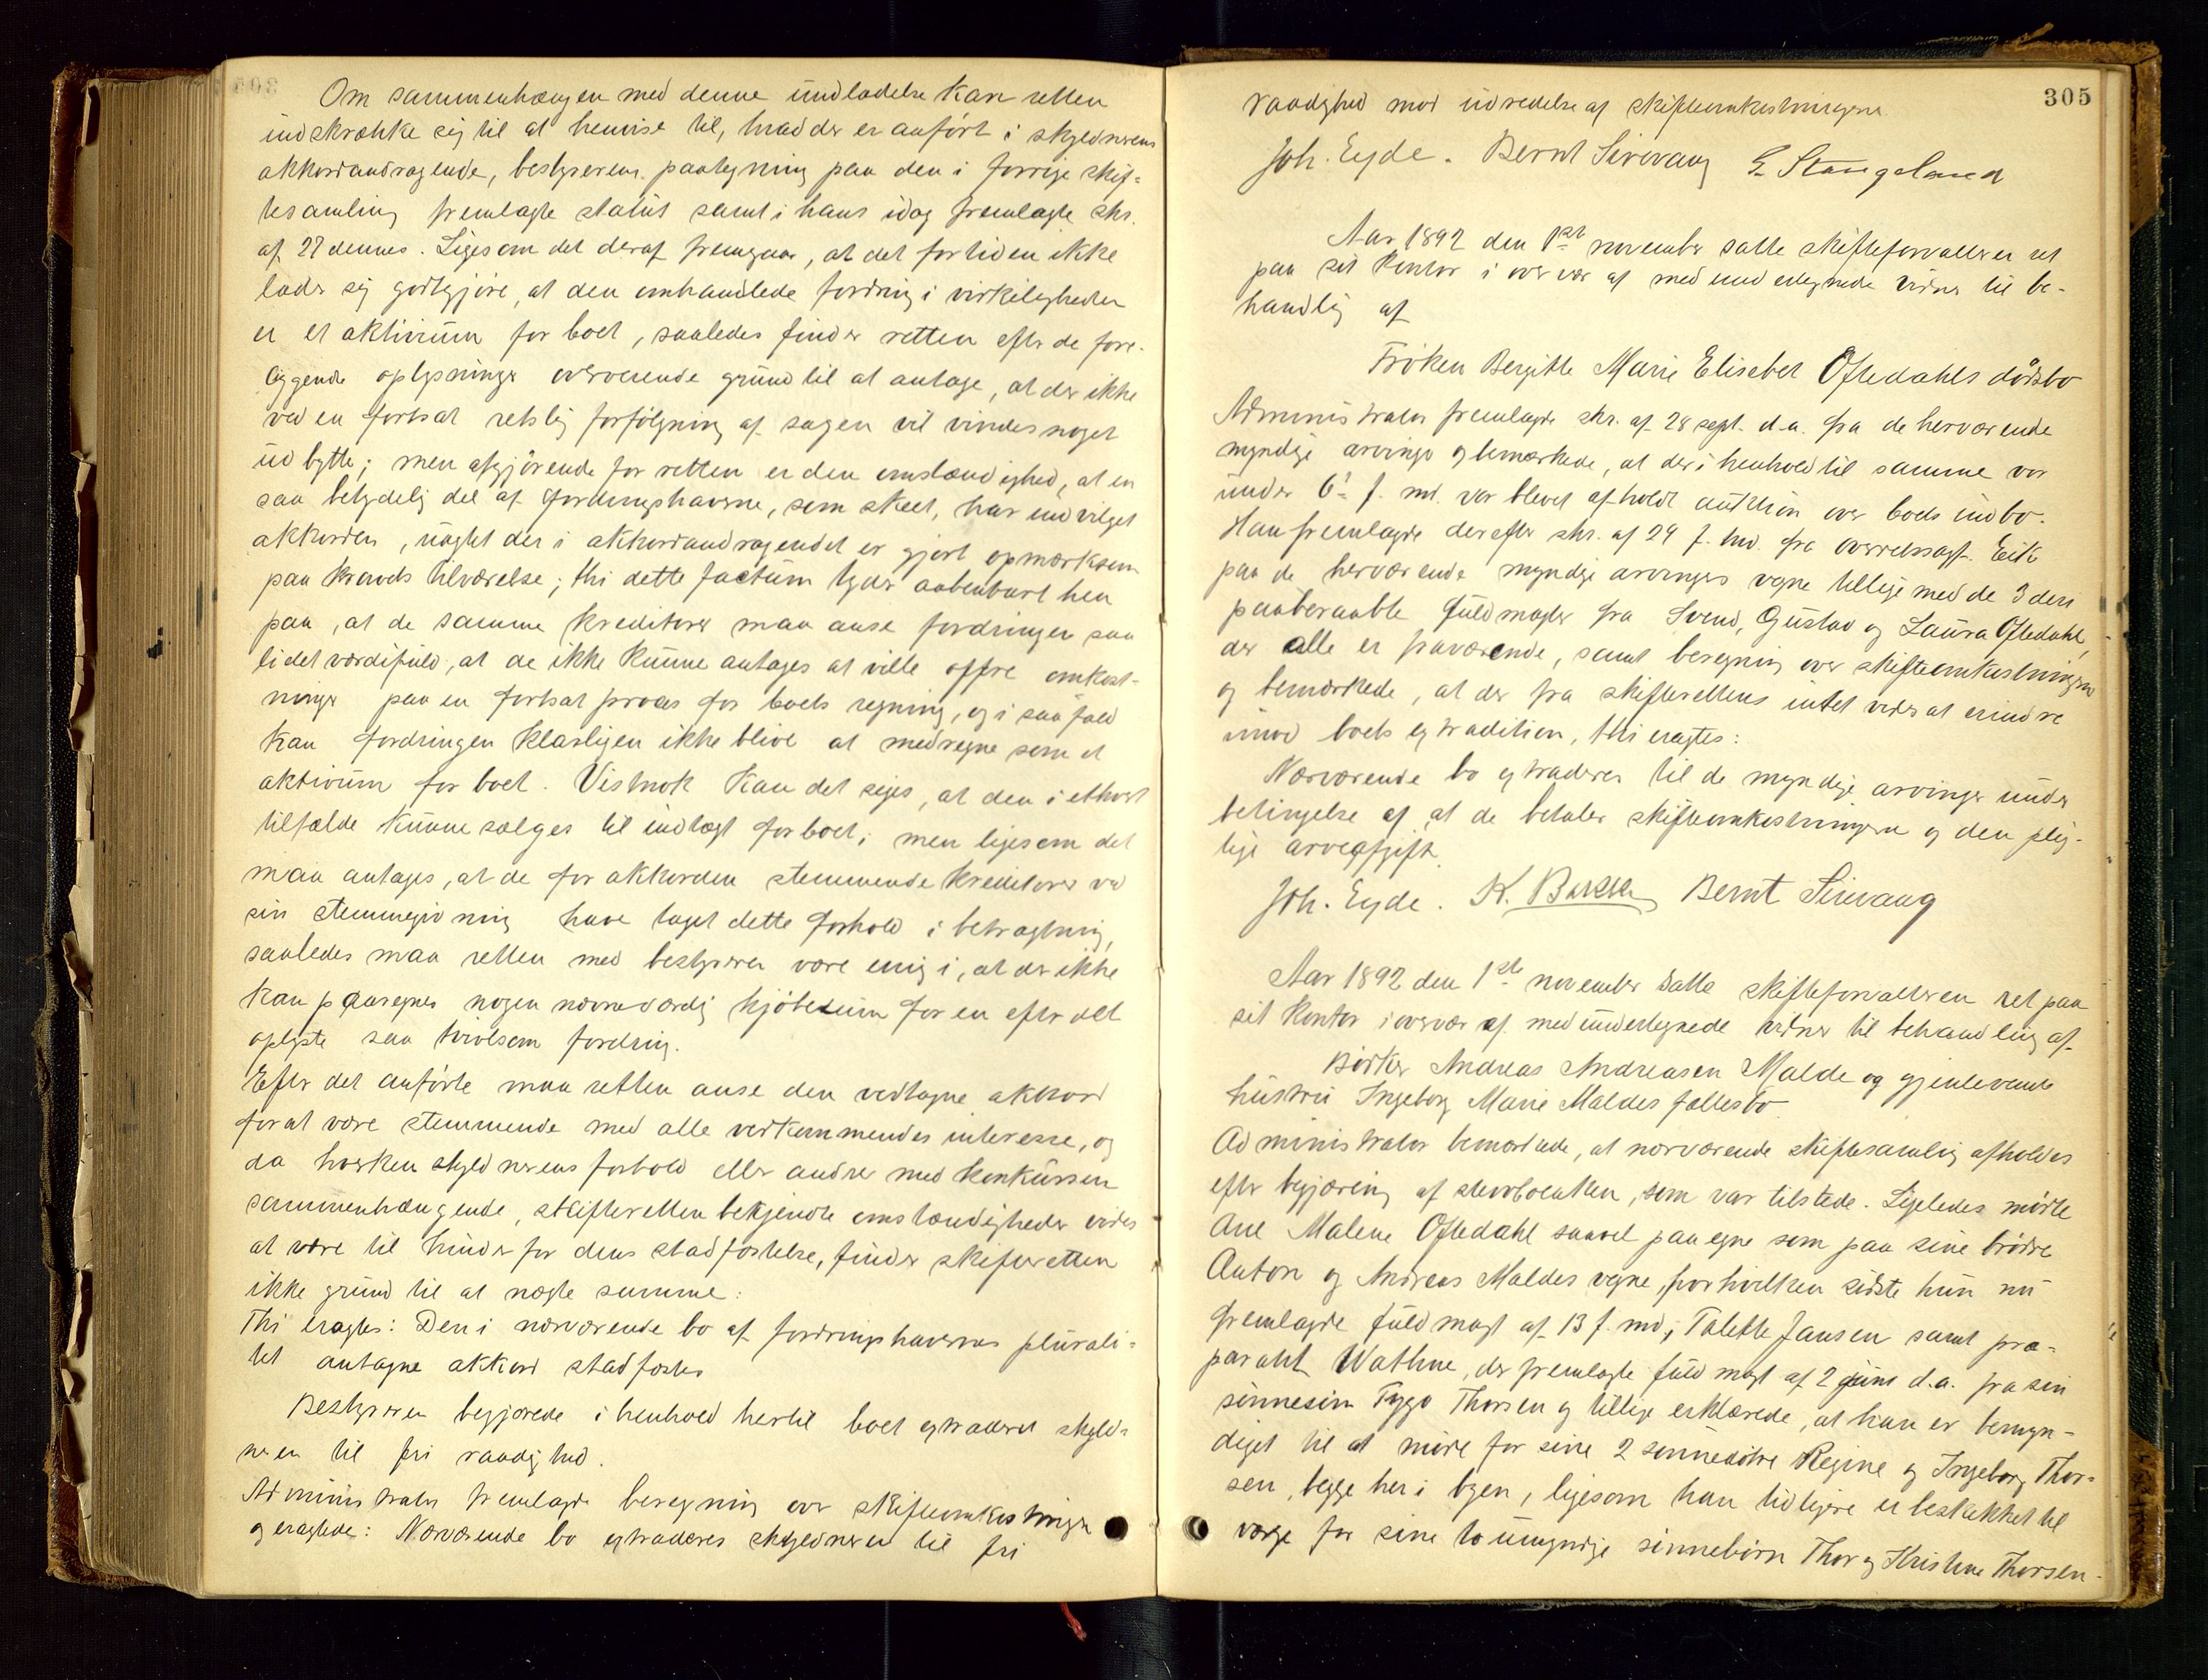 Om sammenhængen med denne undladelse kan retten
indskrænke sig til at henvise til, hvad der er anført i skyldnerens
akkordandragende, bestyrerens paategning paa den i forrige skif-
tesamling fremlagte status samt i hans idag fremlagte skr.
af 27 dennes. Ligesom det deraf fremgaar, at det for tiden ikke
lader sig godtgjøre, at den omhandlede fordring i virkeligheden
er et aktivum for boet, saaledes finder retten efter de fore-
liggende oplysninger overveiende grund til at antage, at der ikke
ved en fortsat retslig forfølgning af sagen vil vindes noget
udbytte; men afgjørende for retten er den omstændighed, at en
saa betydelig del af fordringshaverne, som skeet, har indvilget
akkorden, uagtet der i akkordandragendet er gjort opmærksom
paa kravets tilværelse; thi dette factum tyder aabenbart hen
paa, at de samme kreditorer maa anse fordringen saa
lidet værdifuld, at de ikke kunne antages at ville offre omkost-
ninger paa en fortsat proces for boets regning, og i saa fald
kan fordringen klarligen ikke blive at medregne som et
aktivum for boet. Vistnok kan det siges, at den i ethvert
tilfælde kunne sælges til indtægt for boet; men ligesom det
maa antages, at de for akkorden stemmende kreditorer ved
sin stemmegivning have taget dette forhold i betragtning,
saaledes maa retten med bestyreren være enig i, at der ikke
kan paaregnes nogen nævneværdig kjøbesum for en efter det
oplyste saa tvivlsom fordring.
Efter det anførte maa retten anse den vedtagne akkord
forat være stemmende med alle vedkommendes interesse, og
da hverken skyldnerens forhold eller andre med konkursen
sammenhængende, skifteretten bekjendte omstændigheder vides
at være til hinder for dens stadfæstelse, finder skifteretten
ikke grund til at nægte samme:
Thi eragtes: Den i nærværende bo af fordringshavernes plurali-
tet antagne akkord stadfæstes
Bestyreren begjærede i henhold hertil boet extraderet skyld-
neren til fri raadighed.
Administrator fremlagde beregning over skifteomkostninger
og eragtede: Nærværende bo extraderes skyldneren til fri
305
raadighed mod udredelse af skifteomkostningerne.
Joh. Eyde. Bernt Sirevaag G Stangeland
Aar 1892 den 1ste november satte skifteforvalteren ret
paa sit kontor i overvær af medundertegnede vidner til be-
handling af
Frøken Bergitte Marie Elisebet Oftedahls dødsbo
Administrator fremlagde skr. af 28 sept. d.a. fra de herværende
myndige arvinger og bemærkede, at der i henhold til samme var
under 6te f. md. var blevet afholdt auktion over boets indbo.
Han fremlagde derefter skr. af 29 f. md. fra overretssagf. Eik
paa de herværende myndige arvingers vegne tillige med de 3 deri
paaberaabte fuldmagter fra Svend, Gustav og Laura Oftedahl,
der alle er fraværende, samt beregning over skifteomkostningerne
og bemærkede, at der fra skifterettens intet vides at erindre
imod boets extradition, thi eragtes:
Nærværende bo extraderes til de myndige arvinger under
betingelse af, at de betaler skifteomkostningerne og den plig-
tige arveafgift.
Joh. Eyde. K. Bakke Bernt Sirevaag
Aar 1892 den 1ste november satte skifteforvalteren ret paa
sit kontor i overvær af medundertegnede vidner til behandling af
Bødker Andreas Andreasen Malde og gjenlevende
hustru Ingeborg Marie Maldes fællesbo.
Administrator bemærkede, at nærværende skiftesamling afholdes
efter begjæring af stervboenken, som var tilstede. Ligeledes mødte
Ane Malene Oftedahl saavel paa egne som paa sine brødre
Anton og Andreas Maldes vegne, for hvilken sidste hun nu
fremlagde fuldmagt af 13 f. md., Talette Jansen samt præ-
parant Wathne, der fremlagte fuldmagt af 2 juni d.a. fra sin
sønnesøn Tygo Thorsen og tillige erklærede, at han er bemyn-
diget til at møde for sine 2 sønnedøtre Regine og Ingeborg Thor-
sen, begge her i byen, ligesom han tidligere er beskikket til
værge for sine to umyndige sønnebørn Thor og Kristine Thorsen.